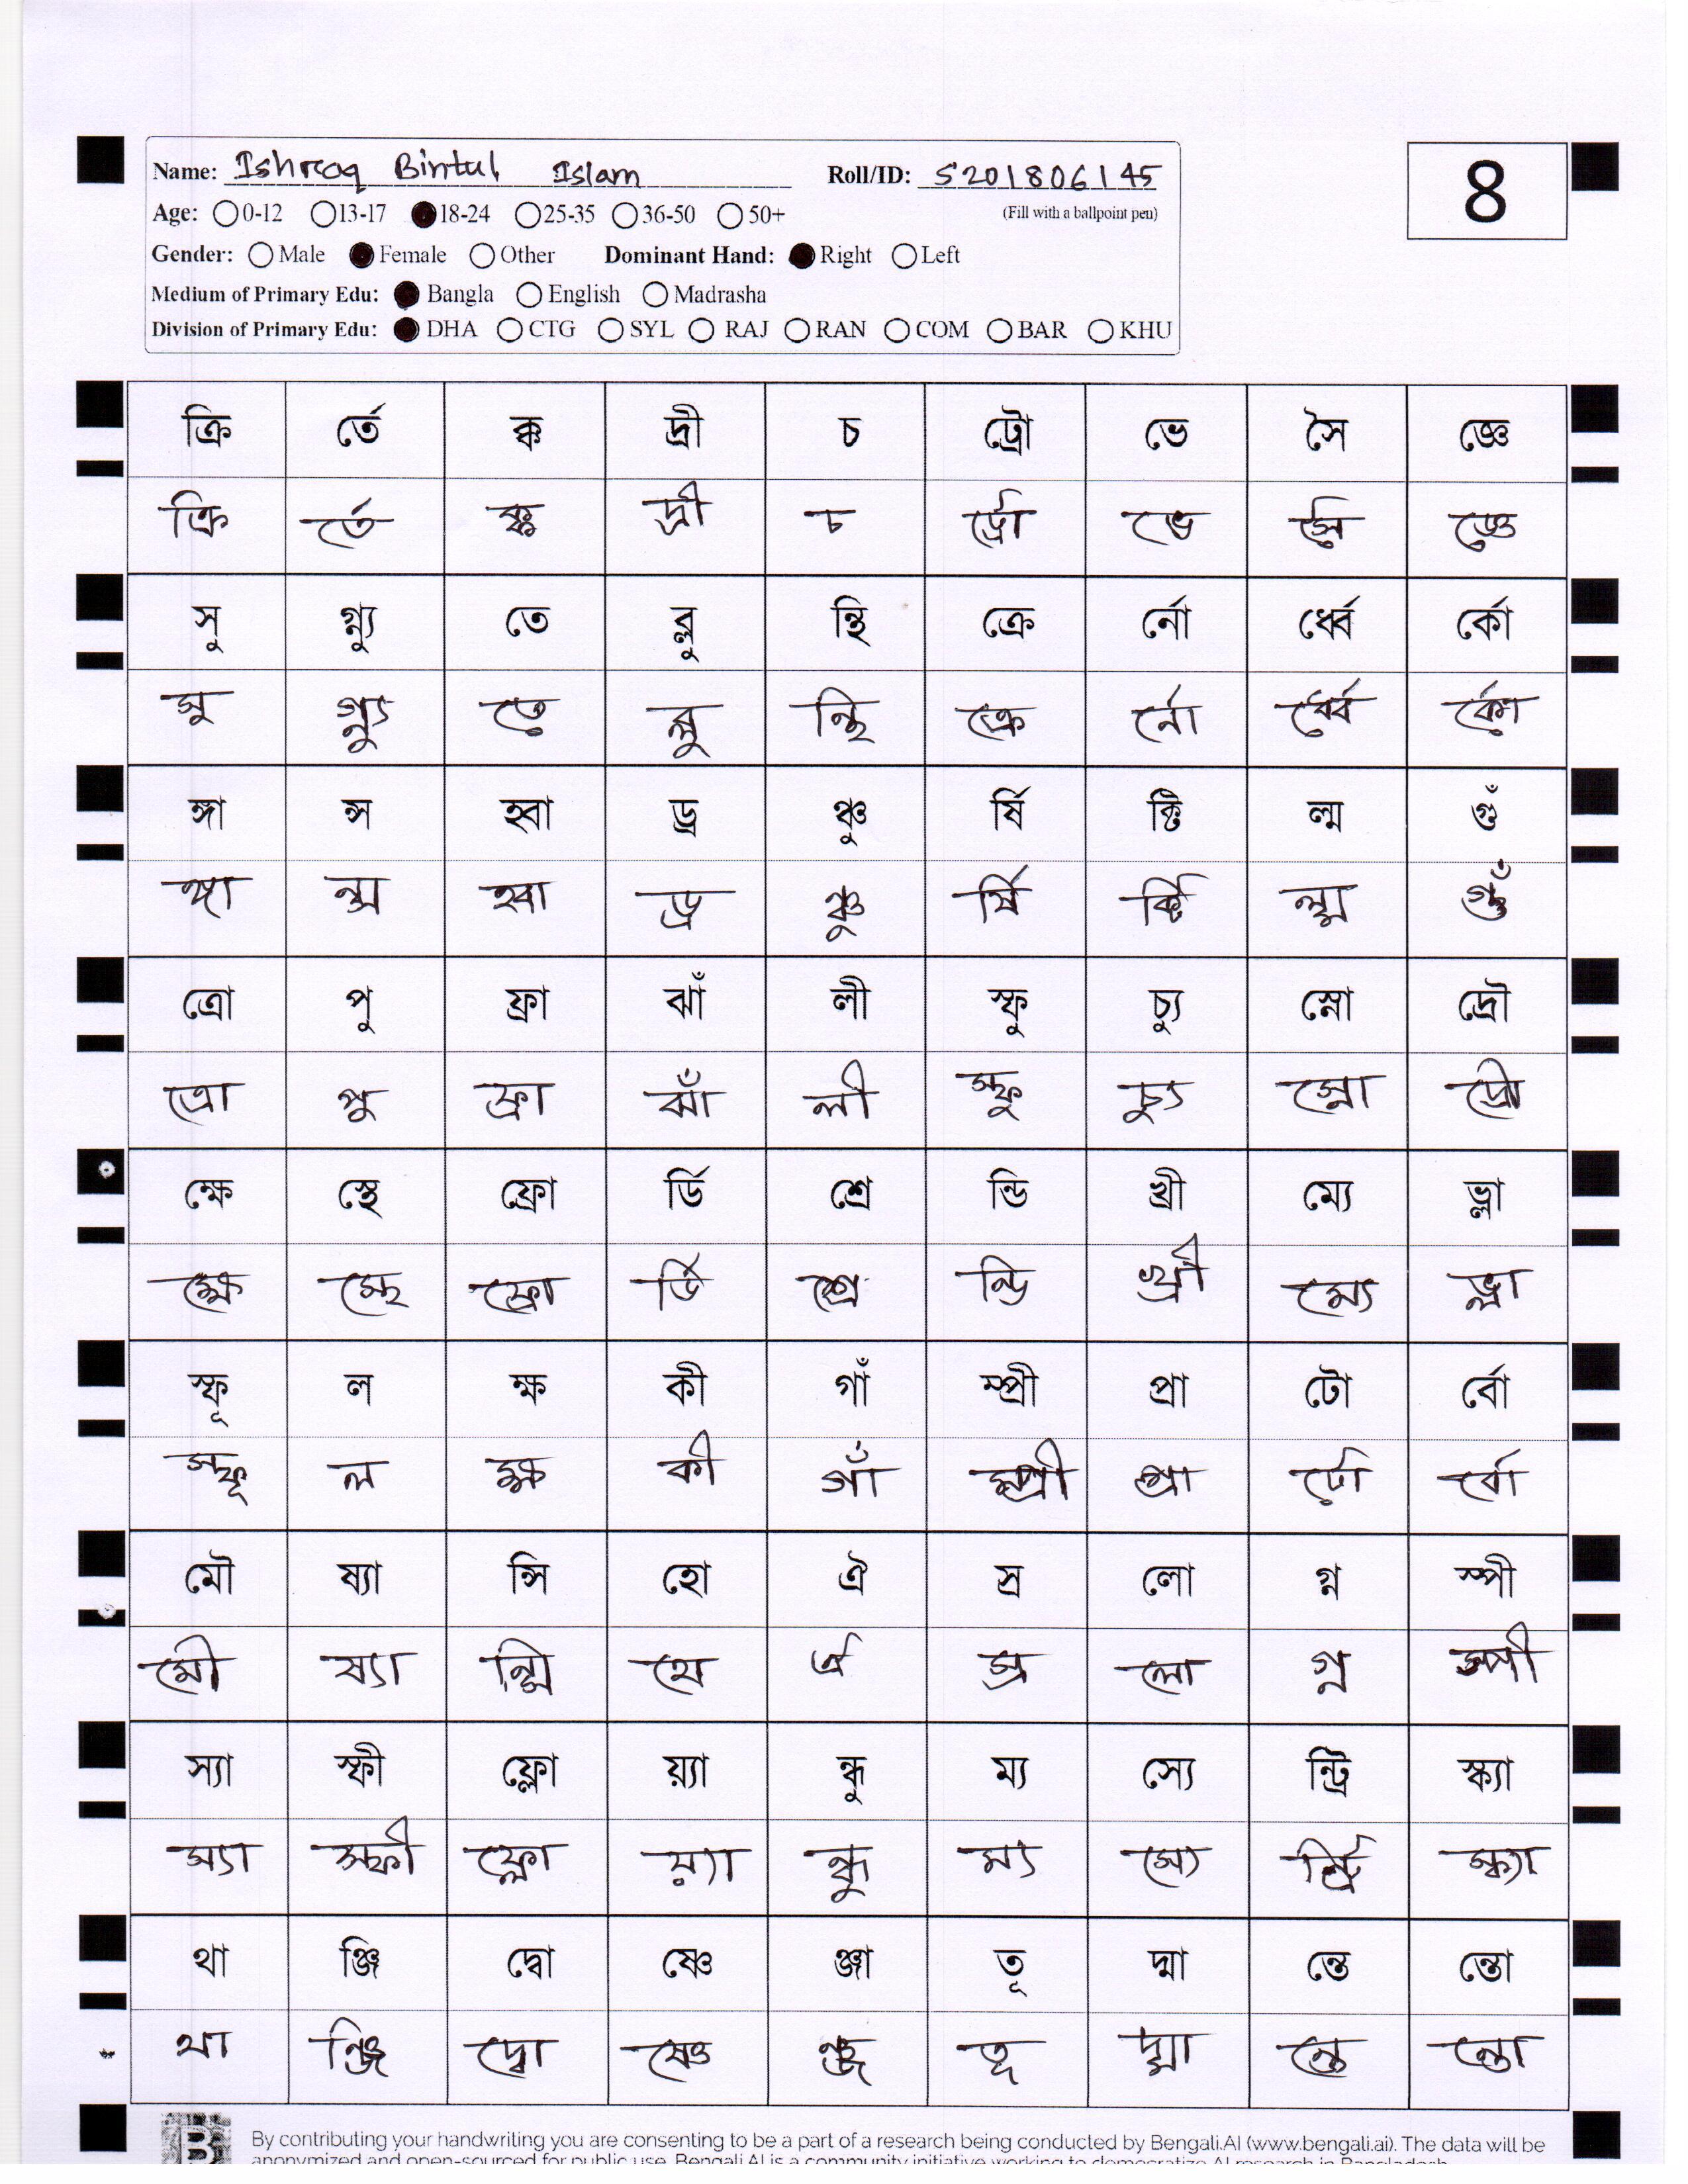 Name: Ishraq Bintul Islam Roll/ID: S201806145
8
Age: 0-12 13-17 18-24 25-35 36-50 50+ (Fill with a ballpoint pen)
Gender: Male Female Other Dominant Hand: Right Left
Medium of Primary Edu: Bangla English Madrasha
Division of Primary Edu: DHA CTG SYL RAJ RAN COM BAR KHU
ক্রি র্তে ক্ক দ্রী চ ট্রো ভে সৈ জ্ঞে
ক্রি র্তে ক্ক দ্রী চ ট্রো ভে সৈ জ্ঞে
সু গ্ন্যু তে ব্লু ন্থি ক্রে র্নো র্ধ্বে র্কো
সু গ্ন্যু তে ব্লু ন্থি ক্রে র্নো র্ধ্বে র্কো
ঙ্গা ন্স হ্বা ড্র ঞ্চু র্ষি ক্টি ল্ম গুঁ
ঙ্গা ন্স হ্বা ড্র ঞ্চু র্ষি ক্টি ল্ম গুঁ
ত্রো পু ফ্রা ঝাঁ লী স্ফু চ্যু স্নো দ্রৌ
ত্রো পু ফ্রা ঝাঁ লী স্ফু চ্যু স্নো দ্রৌ
ক্ষে স্থে ফ্রো র্ডি শ্রে ন্ডি খ্রী ম্যে ভ্লা
ক্ষে স্থে ফ্রো র্ডি শ্রে ন্ডি খ্রী ম্যে ভ্লা
স্ফূ ল ক্ষ কী গাঁ ম্প্রী প্রা টো র্বো
স্ফূ ল ক্ষ কী গাঁ ম্প্রী প্রা টো র্বো
মৌ ষ্যা ন্সি হো ঐ স্র লো গ্ন স্পী
মৌ ষ্যা ন্সি হো ঐ স্র লো গ্ন স্পী
স্যা স্ফী ফ্লো য়্যা ন্ধু ম্য স্যে ন্ট্রি স্ক্যা
স্যা স্ফী ফ্লো য়্যা ন্ধু ম্য স্যে ন্ট্রি স্ক্যা
থা ঞ্জি দ্বো ষ্ণে ঞ্জা তূ দ্মা ন্তে ন্তো
থা ঞ্জি দ্বো ষ্ণে ঞ্জ তূ দ্মা ন্তে ন্তো
B By contributing your handwriting you are consenting to be a part of a research being conducted by Bengali.AI (www.bengali.ai). The data will be
anonymized and open-sourced for public use. Bengali.AI is a community initiative working to democratize AI research in Bangladesh